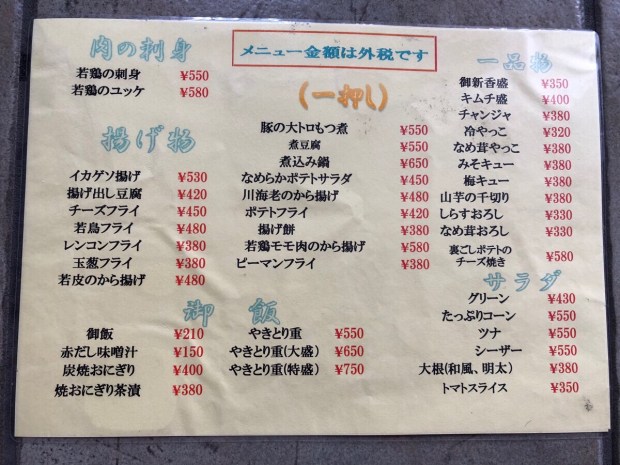 肉の刺身
若鶏の刺身 ¥550
若鶏のユッケ ¥580
揚げ物
イカゲソ揚げ ¥530
揚げ出し豆腐 ¥420
チーズフライ ¥450
若鳥フライ ¥480
レンコンフライ ¥380
玉葱フライ ¥380
若皮のから揚げ ¥480
メニュー金額は外税です
(一押し)
豚の大トロもつ煮 ¥550
煮豆腐 ¥380
煮込み鍋 ¥550
なめらかポテトサラダ ¥450
川海老のから揚げ ¥480
ポテトフライ ¥420
揚げ餅 ¥380
若鶏モモ肉のから揚げ ¥580
ピーマンフライ ¥380
一品物
御新香盛 ¥350
キムチ盛 ¥400
チャンジャ ¥380
冷やっこ ¥320
なめ茸やっこ ¥380
みそキュー ¥380
梅キュー ¥380
山芋の千切り ¥380
しらすおろし ¥330
なめ茸おろし ¥330
裏ごしポテトの
チーズ焼き ¥580
サラダ
グリーン ¥430
たっぷりコーン ¥550
ツナ ¥550
シーザー ¥550
大根(和風、明太) ¥380
トマトスライス ¥350
御飯
御飯 ¥210
赤だし味噌汁 ¥150
炭焼おにぎり ¥400
焼おにぎり茶漬 ¥380
やきとり重 ¥550
やきとり重(大盛) ¥650
やきとり重(特盛) ¥750